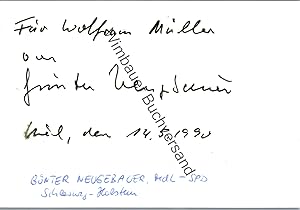 Für Wolfram Müller
von
Günter Neugebauer
Kiel, den 14.5.1990
GÜNTER NEUGEBAUER, MdL-SPD
Schleswig-Holstein
Wimbauer Buchversand